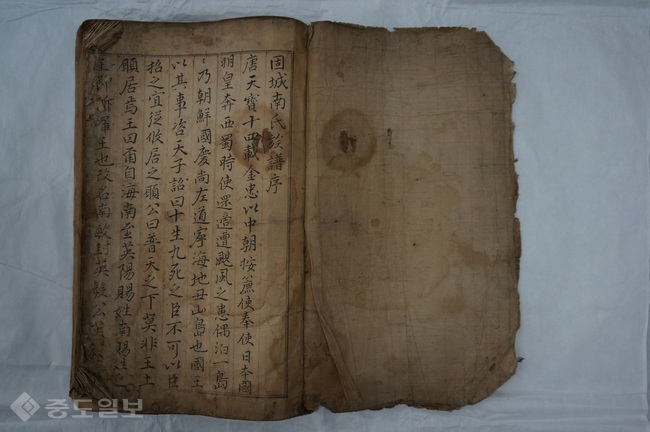 固城南氏族譜序
唐天寶十四載金忠以中朝按廉使奉使日本國
明皇奔西蜀時使還適遭颶風之患偶泊一島
乃朝鮮國慶尚左道寧海地丑山島也國王
以其事咨天子詔曰十生九死之臣不可以臣
招之宜從攸居之願公曰普天之下莫非王土
願居焉王曰爾自海南至英陽賜姓南賜
羅王也改名南敏封英毅公英
중도일보